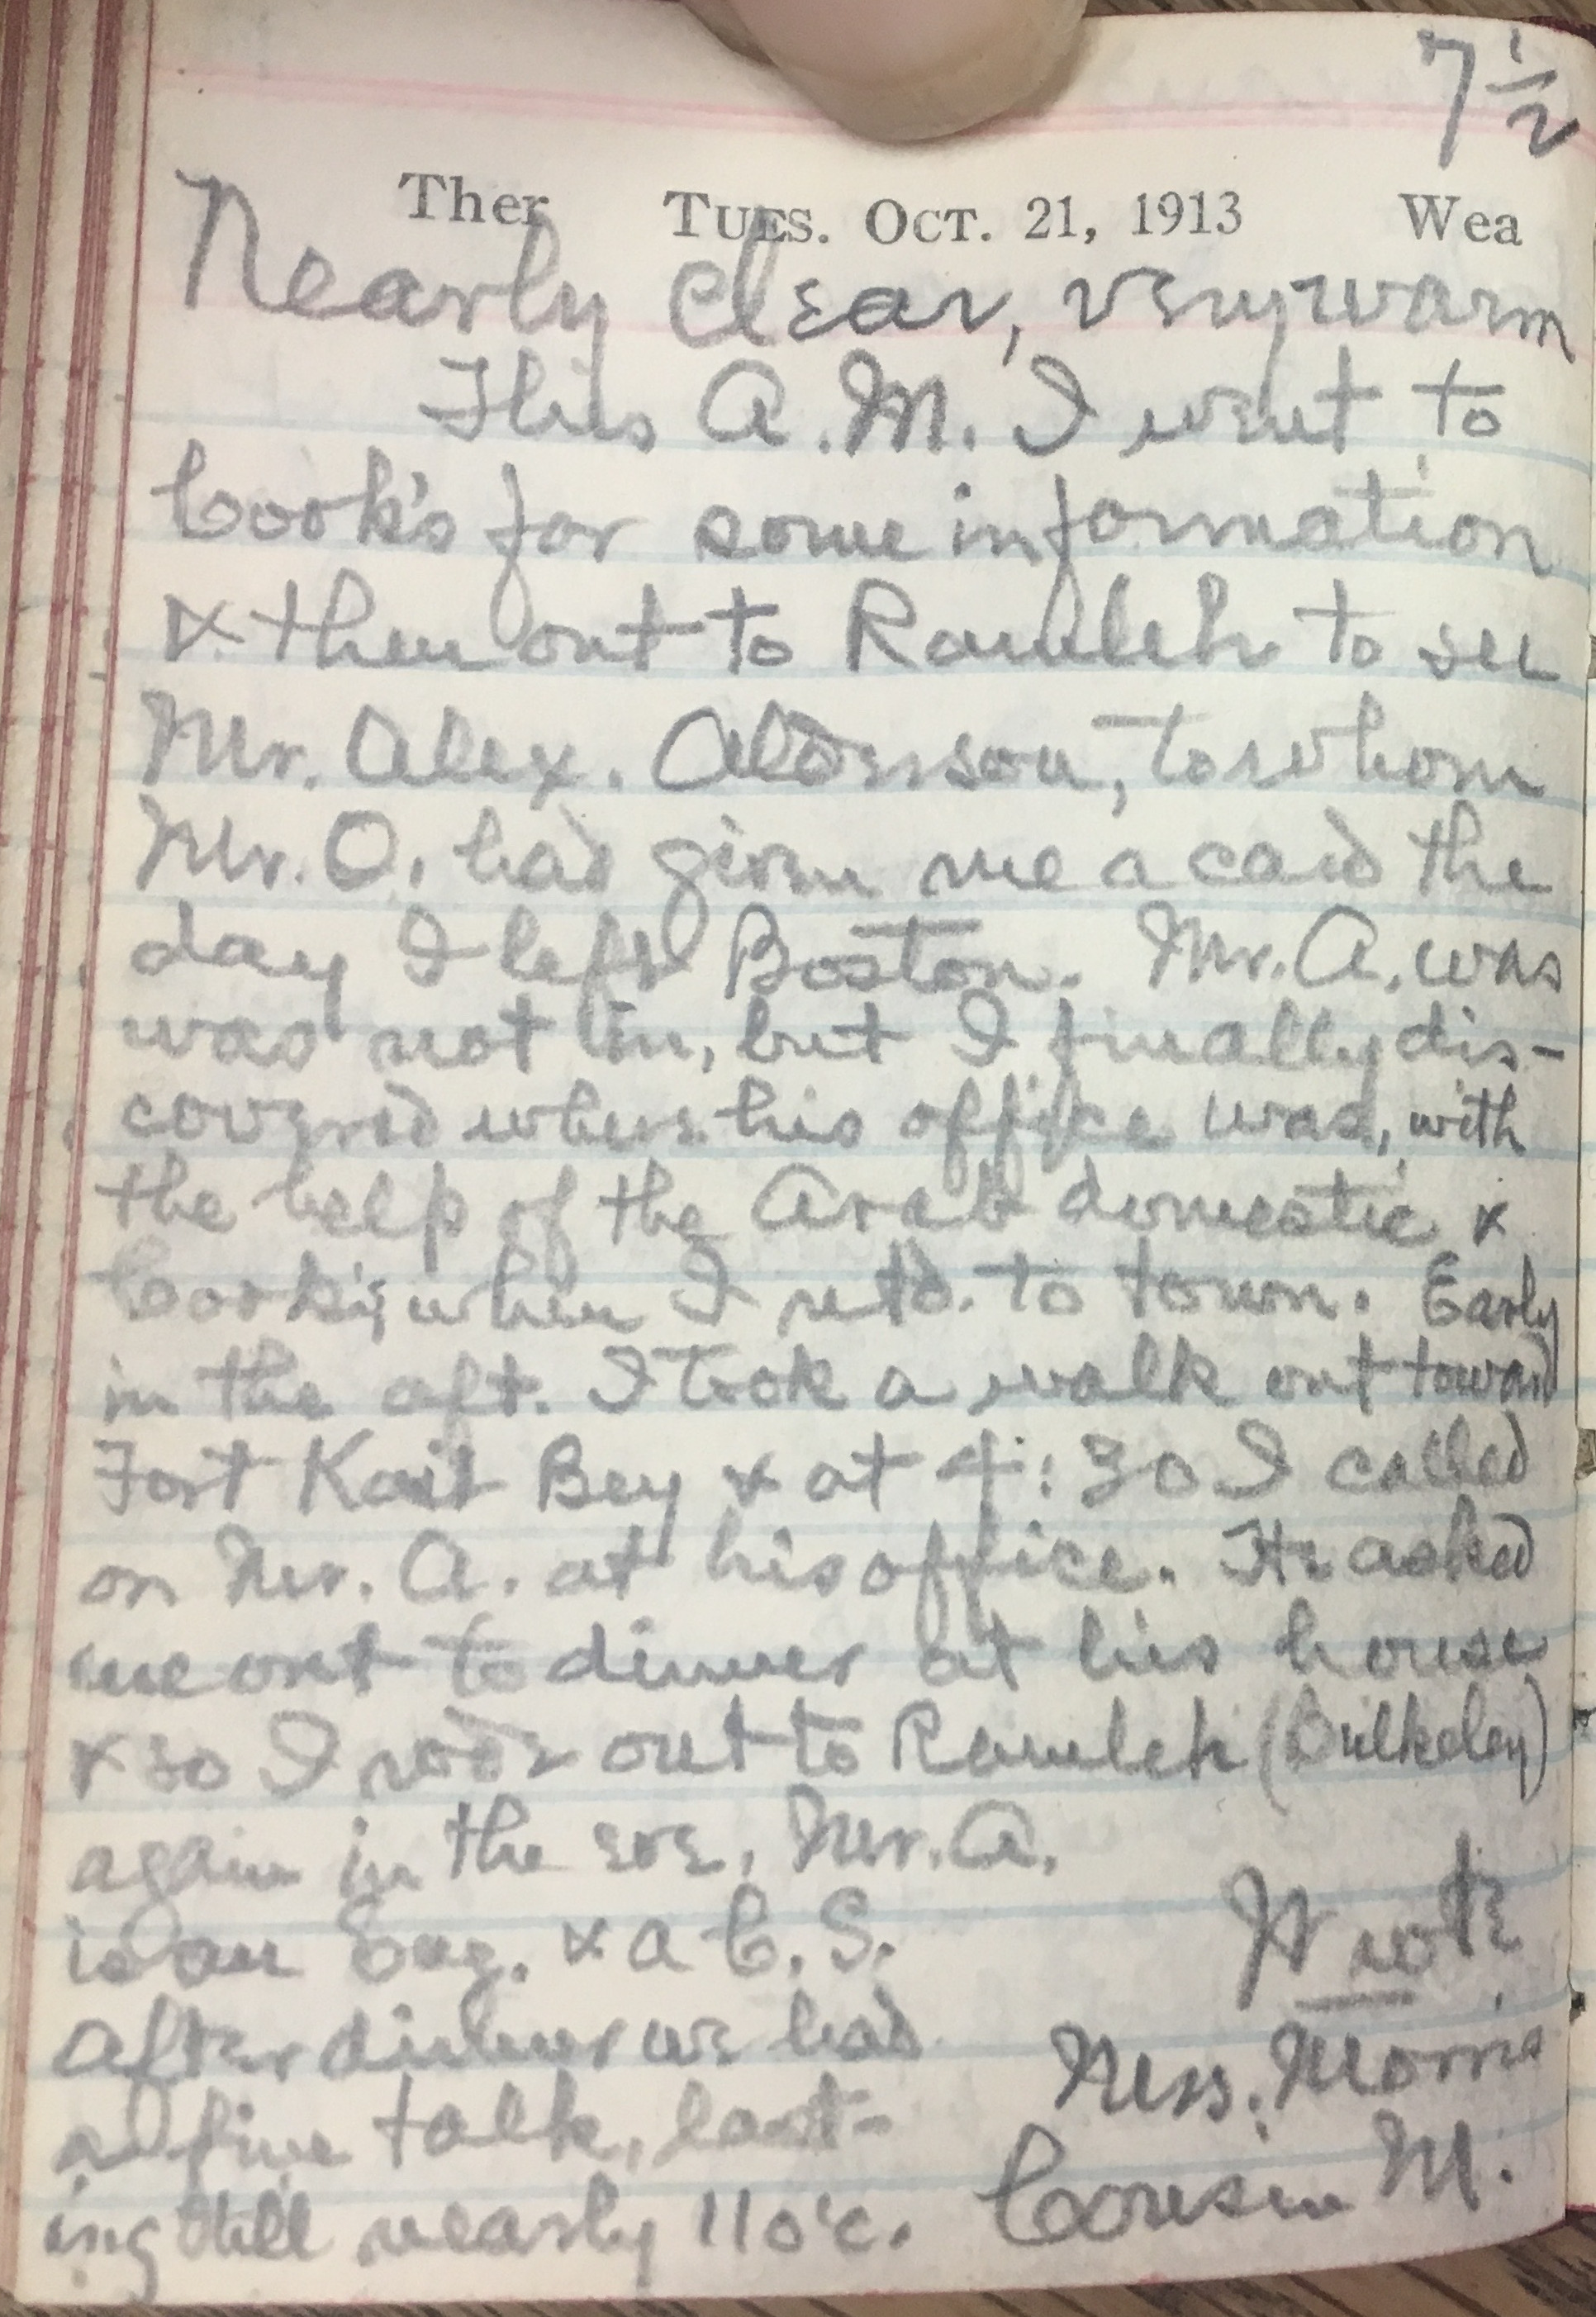 7 1/2
Ther TUES. OCT. 21, 1913 Wea
Nearly clear, very warm
This A.M. I went to
Cook's for some information
& then out to Ramleh to see
Mr. Alex. Alderson, to whom
Mr. O. had given me a card the
day I left Boston. Mr. A. was
was not in, but I finally dis-
covered where his office was, with
the help of the Arab domestic &
Cook's, when I retd. to town. Early
in the aft. I took a walk out toward
Fort Kait Bey & at 4:30 I called
on Mr. A. at his office. He asked
me out to dinner at his house
& so I rode out to Ramleh (Bulkeley)
again in the eve. Mr. A.
is an Eng. & a C. S.
After dinner we had
a fine talk, last-
ing till nearly 11 o'c.
Wrote
Mrs. Morris
Cousin M.